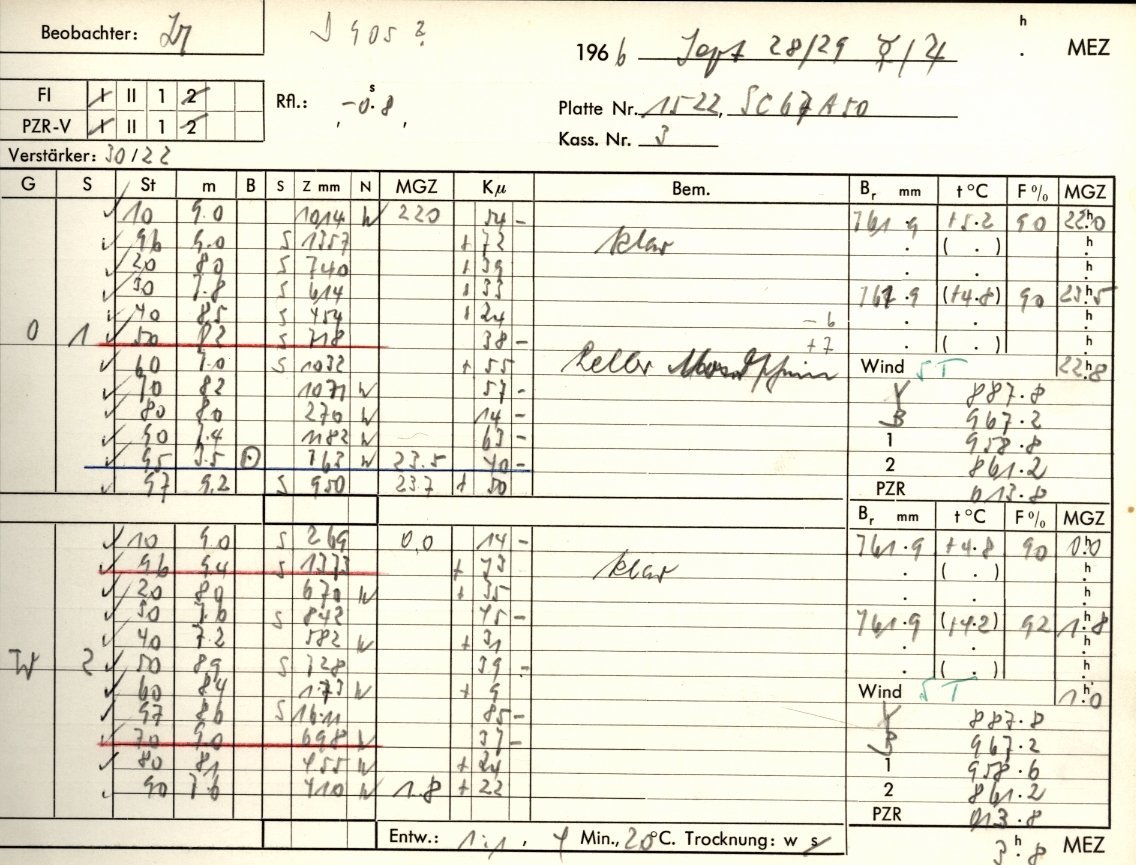 Beobachter:
1966 Sept 28/29 ☿/♃ h . MEZ
FI I II 1 2
PZR-V I II 1 2
Rfl.: -0.8 s
Platte Nr. 1522, SC67A50
Kass. Nr. 3
Verstärker: 30/22
G S St m B S Z mm N MGZ Kμ Bem. Br mm t °C F % MGZ
10 9.0 1014 W 220 54 - 761.9 +5.2 90 22.0 h
96 9.0 S 1357 + 72 klar . ( . ) h
20 8.0 S 740 + 39 . . h
30 7.8 S 614 + 33 761.9 (+4.8) 90 23.5 h
40 8.5 S 454 + 24 -6 . . h
0 1 50 8.2 S 718 38 - +7 . ( . ) h
60 7.0 S 1032 + 55 Wind 22.8 h
70 8.2 1071 W 57 - 887.8
80 8.0 270 W 14 - 967.2
90 7.4 1182 W 63 - 1 958.8
95 3.5 763 W 23.5 40 - 2 861.2
97 9.2 S 950 23.7 + 50 PZR 013.8
Br mm t °C F % MGZ
10 9.0 S 269 0,0 14 - 761.9 +4.8 90 0.0 h
96 9.4 S 1373 + 73 klar . ( . ) h
20 8.0 670 W + 35 . . h
30 7.6 S 842 45 - 761.9 (+4.2) 92 1.8 h
40 7.2 582 W + 31 . . h
W 2 50 8.9 S 728 39 - . ( . ) h
60 8.4 173 W + 9 Wind 1.0 h
97 8.6 S 1611 85 - 887.8
70 9.0 698 W 37 - 967.2
80 8.1 455 W + 24 1 958.6
90 7.6 410 W 1.8 + 22 2 861.2
PZR 013.8
Entw.: 1:1, 4 Min., 20°C. Trocknung: w s 3.8 h MEZ